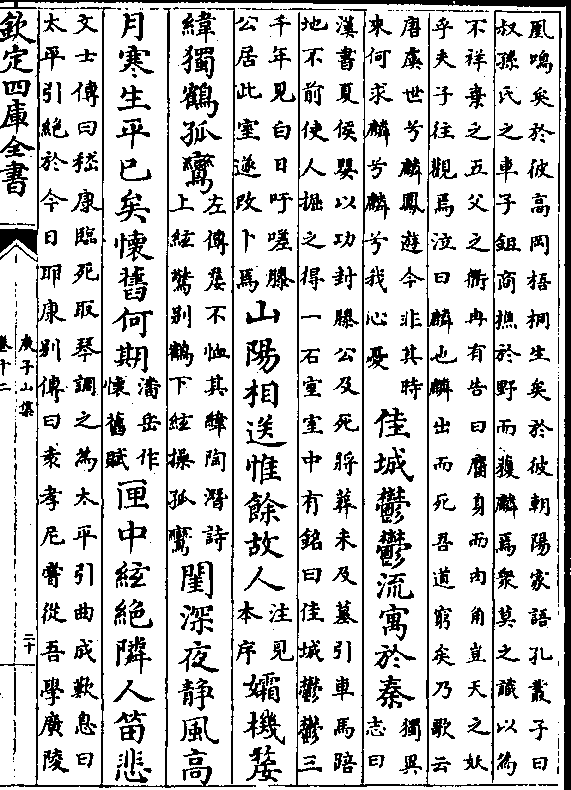 凰鳴矣於彼高岡梧桐生矣於彼朝陽家語孔叢子曰
叔孫氏之車子鉏商樵於野而獲麟焉衆莫之識以為
不祥棄之五父之衢冉有告曰麕身而肉角豈天之妖
乎夫子往觀焉泣曰麟也麟出而死吾道窮矣乃歌云
唐虞世兮麟鳳遊今非其時
來何求麟兮麟兮我心憂
佳城鬱鬱流寓於秦
獨異
志曰
漢書夏侯嬰以功封滕公及死將葬未及墓引車馬踣
地不前使人掘之得一石室室中有銘曰佳城鬱鬱三
千年見白日吁嗟滕
公居此室遂改卜焉
山陽相送惟餘故人
注見
本序
孀機嫠
緯獨鶴孤鸞
左傳嫠不恤其緯陶潛詩
上絃驚别鶴下絃操孤鸞
閨深夜静風高
月寒生平已矣懷舊何期
潘岳作
懷舊賦
匣中絃絶隣人笛悲
文士傳曰嵇康臨死取琴調之為太平引曲成歎息曰
太平引絶於今日耶康别傳曰袁孝尼嘗從吾學廣陵
欽定四庫全書
庾子山集
卷十二
二十